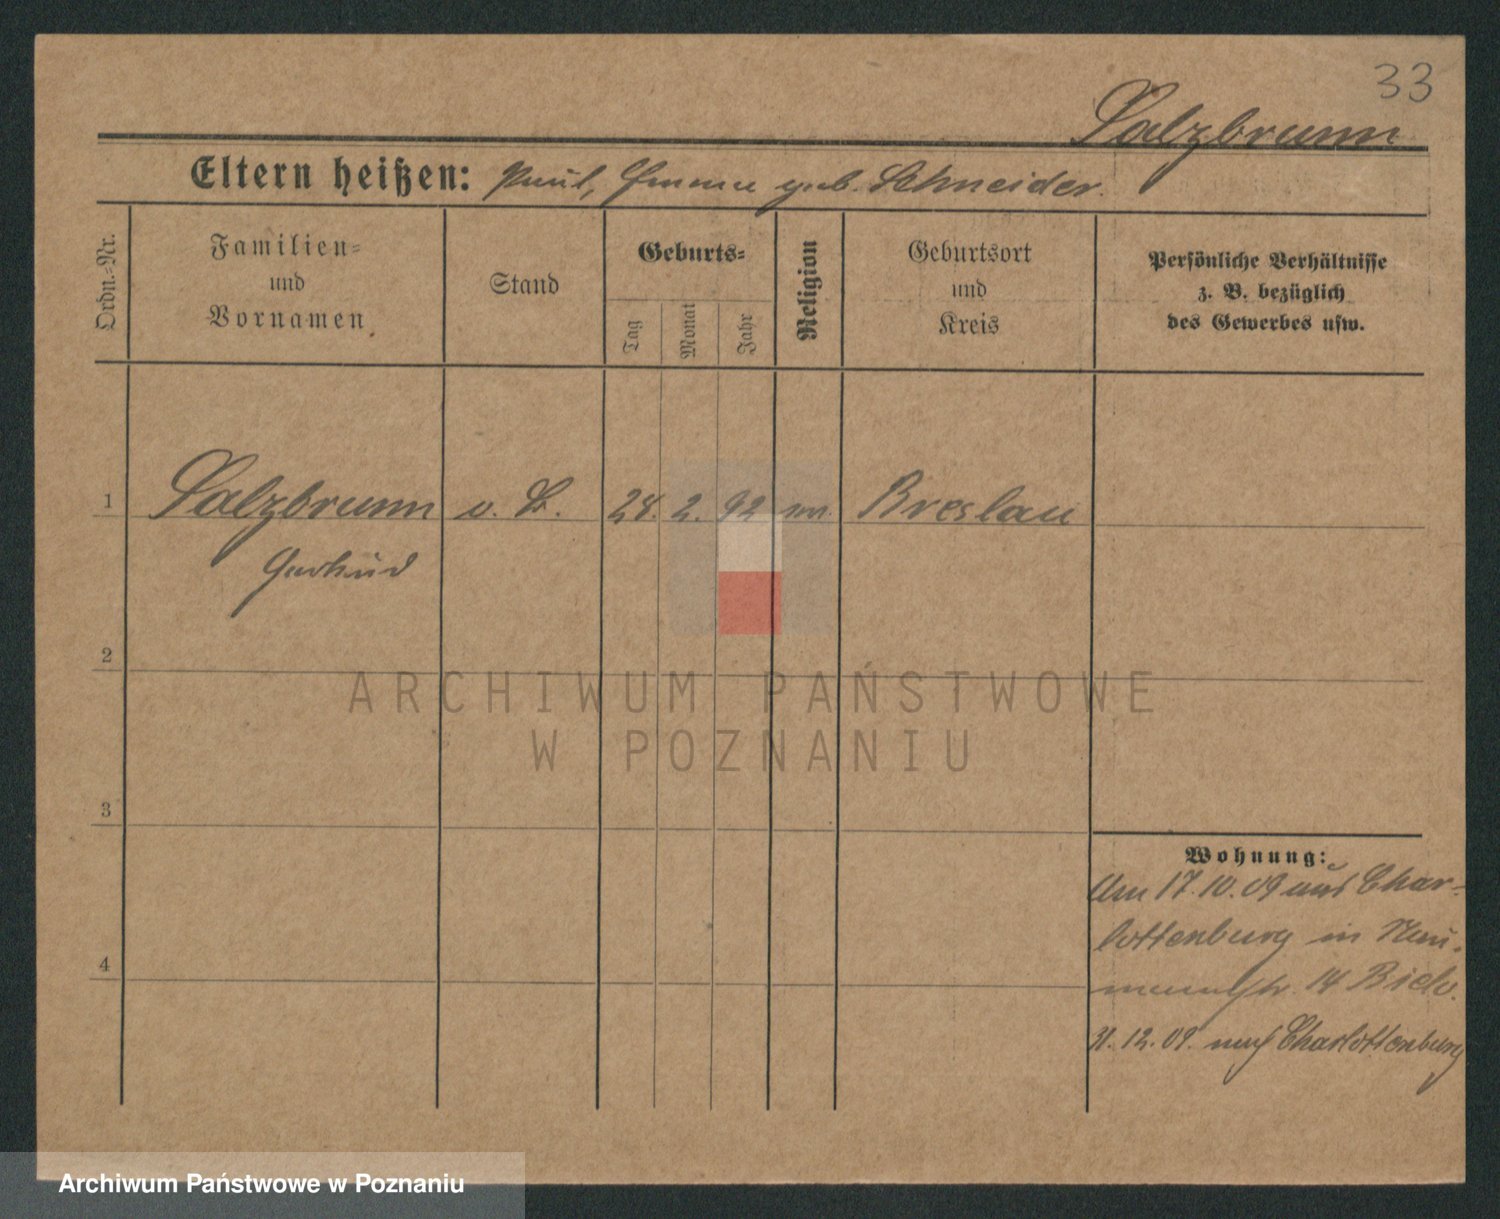 33
Salzbrunn
Eltern heißen: Paul, Emma geb. Schneider.
Ordn.=Nr.
Familien=
und
Vornamen
Stand
Geburts=
Tag
Monat
Jahr
Religion
Geburtsort
und
Kreis
Persönliche Verhältnisse
z. B. bezüglich
des Gewerbes usw.
1 Salzbrunn 2. 92 Breslau
Gertrud
2
ARCHIWUM PAŃSTWOWE
W POZNANIU
3
Wohnung:
Am 17.10.09 aus Char=
lottenburg in Nau=
mannstr. 14
4
31.12.09. nach Charlottenburg
Archiwum Państwowe w Poznaniu